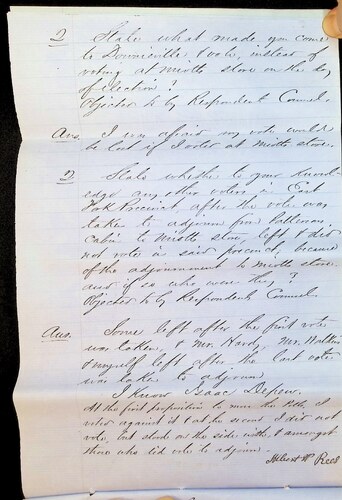 Q State what made you come
to Downieville & vote, instead of
voting at Mirtle store on the day
of election?
Objected to by Respondent Counsel.
Ans. I was afraid my vote would
be lost if I voted at Mirtle store.
Q State whether to your knowl-
edge any other voters in East
Fork Precinct, after the vote was
taken to adjourn from Patterson
Cabin to Mirtle store, left & did
not vote in said precinct, because
of the adjournment to Mirtle store
and if so who were they?
Objected to by Respondents Counsel
Ans. Some left after the first vote
was taken, & Mr. Hardy, Mr. Watkins
& myself left after the last vote
was taken to adjourn.
I know Isaac Depew.
At the first proposition to move the polls, I
voted against it & at the second I did not
vote, but stood on the side with & amongst
those who did vote to adjourn.
Albert W Rees